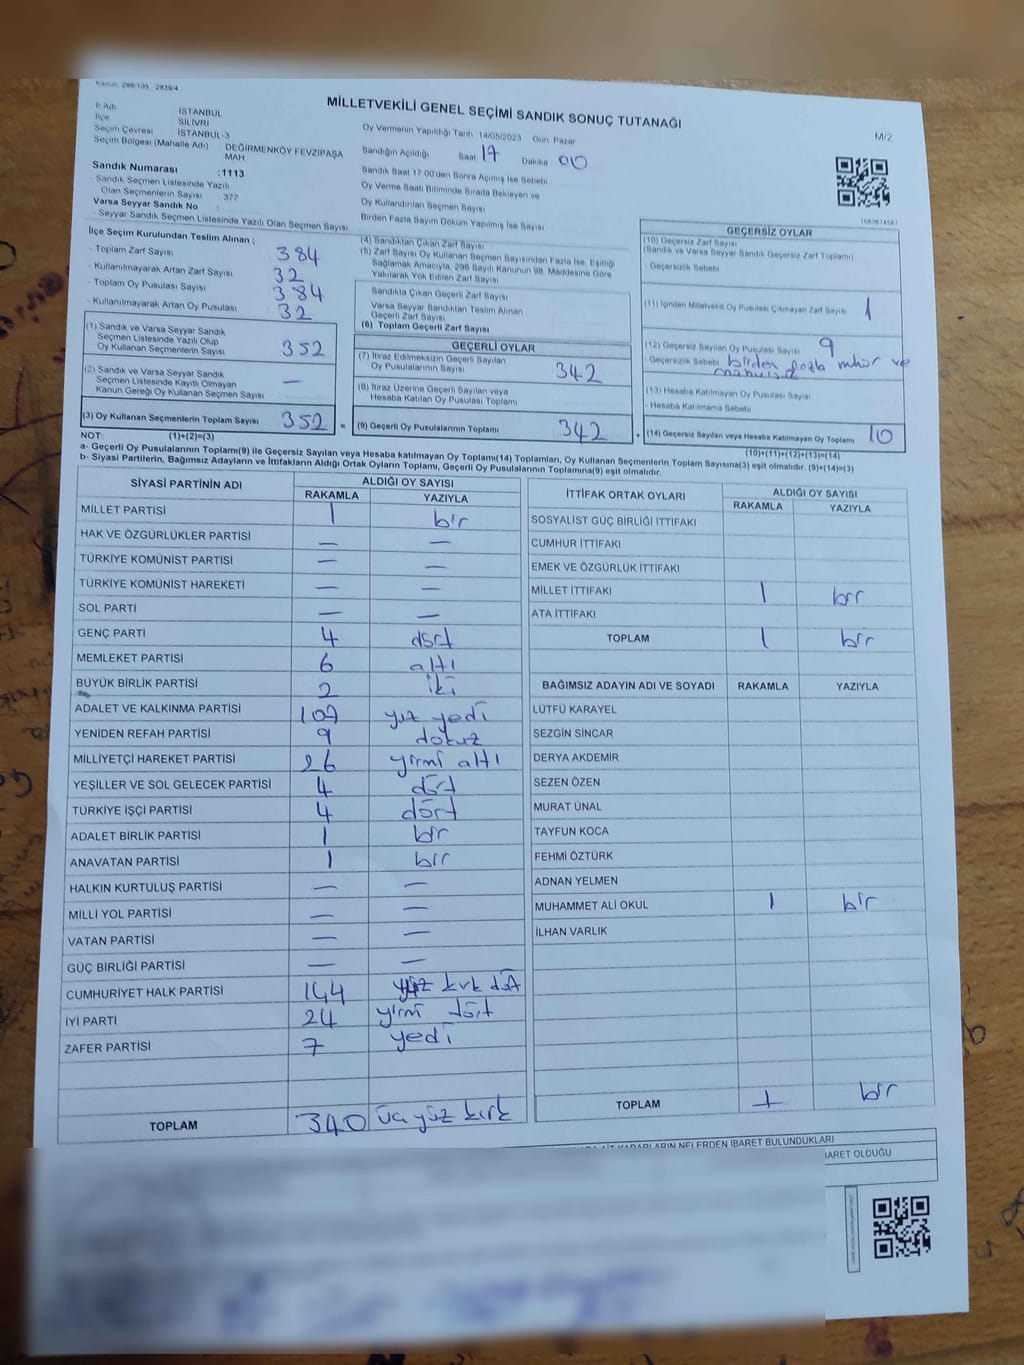 Kanun: 298/105 2839/4
MİLLETVEKİLİ GENEL SEÇİMİ SANDIK SONUÇ TUTANAĞI
M/2
İl Adı İSTANBUL
İlçe SİLİVRİ
Seçim Çevresi İSTANBUL-3
Seçim Bölgesi (Mahalle Adı) DEĞİRMENKÖY FEVZİPAŞA MAH
Sandık Numarası :1113
- Sandık Seçmen Listesinde Yazılı
Olan Seçmenlerin Sayısı : 377
Varsa Seyyar Sandık No :
- Seyyar Sandık Seçmen Listesinde Yazılı Olan Seçmen Sayısı
Oy Vermenin Yapıldığı Tarih 14/05/2023 Gün Pazar
Sandığın Açıldığı Saat 17 Dakika 00
Sandık Saat 17.00'den Sonra Açılmış İse Sebebi
Oy Verme Saati Bitiminde Sırada Bekleyen ve
Oy Kullandırılan Seçmen Sayısı
Birden Fazla Sayım Döküm Yapılmış İse Sayısı
İlçe Seçim Kurulundan Teslim Alınan ;
- Toplam Zarf Sayısı 384
- Kullanılmayarak Artan Zarf Sayısı 32
- Toplam Oy Pusulası Sayısı 384
- Kullanılmayarak Artan Oy Pusulası 32
(1) Sandık ve Varsa Seyyar Sandık
Seçmen Listesinde Yazılı Olup
Oy Kullanan Seçmenlerin Sayısı 352
(2) Sandık ve Varsa Seyyar Sandık
Seçmen Listesinde Kayıtlı Olmayan
Kanun Gereği Oy Kullanan Seçmen Sayısı —
(3) Oy Kullanan Seçmenlerin Toplam Sayısı 352 =
(4) Sandıktan Çıkan Zarf Sayısı
(5) Zarf Sayısı Oy Kullanan Seçmen Sayısından Fazla İse, Eşitliği
Sağlamak Amacıyla, 298 Sayılı Kanunun 98. Maddesine Göre
Yakılarak Yok Edilen Zarf Sayısı
Sandıkta Çıkan Geçerli Zarf Sayısı
Varsa Seyyar Sandıktan Teslim Alınan
Geçerli Zarf Sayısı
(6) Toplam Geçerli Zarf Sayısı
GEÇERLİ OYLAR
(7) İtiraz Edilmeksizin Geçerli Sayılan
Oy Pusulalarının Sayısı 342
(8) İtiraz Üzerine Geçerli Sayılan veya
Hesaba Katılan Oy Pusulası Toplamı
(9) Geçerli Oy Pusulalarının Toplamı 342 +
GEÇERSİZ OYLAR
(10) Geçersiz Zarf Sayısı
(Sandık ve Varsa Seyyar Sandık Geçersiz Zarf Toplamı)
- Geçersizlik Sebebi
(11) İçinden Milletvekili Oy Pusulası Çıkmayan Zarf Sayısı 1
(12) Geçersiz Sayılan Oy Pusulası Sayısı 9
- Geçersizlik Sebebi birden fazla mühür ve
(13) Hesaba Katılmayan Oy Pusulası Sayısı
- Hesaba Katılmama Sebebi
(14) Geçersiz Sayılan veya Hesaba Katılmayan Oy Toplamı 10
NOT: (1)+(2)=(3) (10)+(11)+(12)+(13)=(14)
a- Geçerli Oy Pusulalarının Toplamı(9) ile Geçersiz Sayılan veya Hesaba katılmayan Oy Toplamı(14) Toplamları, Oy Kullanan Seçmenlerin Toplam Sayısına(3) eşit olmalıdır. (9)+(14)=(3)
b- Siyasi Partilerin, Bağımsız Adayların ve İttifakların Aldığı Ortak Oyların Toplamı, Geçerli Oy Pusulalarının Toplamına(9) eşit olmalıdır.
SİYASİ PARTİNİN ADI ALDIĞI OY SAYISI
RAKAMLA YAZIYLA
MİLLET PARTİSİ 1 bir
HAK VE ÖZGÜRLÜKLER PARTİSİ — —
TÜRKİYE KOMÜNİST PARTİSİ — —
TÜRKİYE KOMÜNİST HAREKETİ — —
SOL PARTİ — —
GENÇ PARTİ 4 dört
MEMLEKET PARTİSİ 6 altı
BÜYÜK BİRLİK PARTİSİ 2 iki
ADALET VE KALKINMA PARTİSİ 107 yüz yedi
YENİDEN REFAH PARTİSİ 9 dokuz
MİLLİYETÇİ HAREKET PARTİSİ 26 yirmi altı
YEŞİLLER VE SOL GELECEK PARTİSİ 4 dört
TÜRKİYE İŞÇİ PARTİSİ 4 dört
ADALET BİRLİK PARTİSİ 1 bir
ANAVATAN PARTİSİ 1 bir
HALKIN KURTULUŞ PARTİSİ — —
MİLLİ YOL PARTİSİ — —
VATAN PARTİSİ — —
GÜÇ BİRLİĞİ PARTİSİ — —
CUMHURİYET HALK PARTİSİ 144 yüz kırk dört
İYİ PARTİ 24 yirmi dört
ZAFER PARTİSİ 7 yedi
TOPLAM 340 üç yüz kırk
İTTİFAK ORTAK OYLARI ALDIĞI OY SAYISI
RAKAMLA YAZIYLA
SOSYALİST GÜÇ BİRLİĞİ İTTİFAKI
CUMHUR İTTİFAKI
EMEK VE ÖZGÜRLÜK İTTİFAKI
MİLLET İTTİFAKI 1 bir
ATA İTTİFAKI
TOPLAM 1 bir
BAĞIMSIZ ADAYIN ADI VE SOYADI RAKAMLA YAZIYLA
LÜTFÜ KARAYEL
SEZGİN SİNCAR
DERYA AKDEMİR
SEZEN ÖZEN
MURAT ÜNAL
TAYFUN KOCA
FEHMİ ÖZTÜRK
ADNAN YELMEN
MUHAMMET ALİ OKUL 1 bir
İLHAN VARLIK
TOPLAM 1 bir
KARARLARIN NELERDEN İBARET BULUNDUKLARI
İBARET OLDUĞU